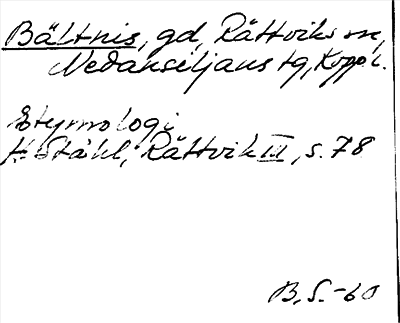 Bältnis, gd, Rättviks sn,
Nedansiljans tg, Kopp.l.
Etymologi
H. Ståhl, Rättvik III, s. 78
B. S. -60